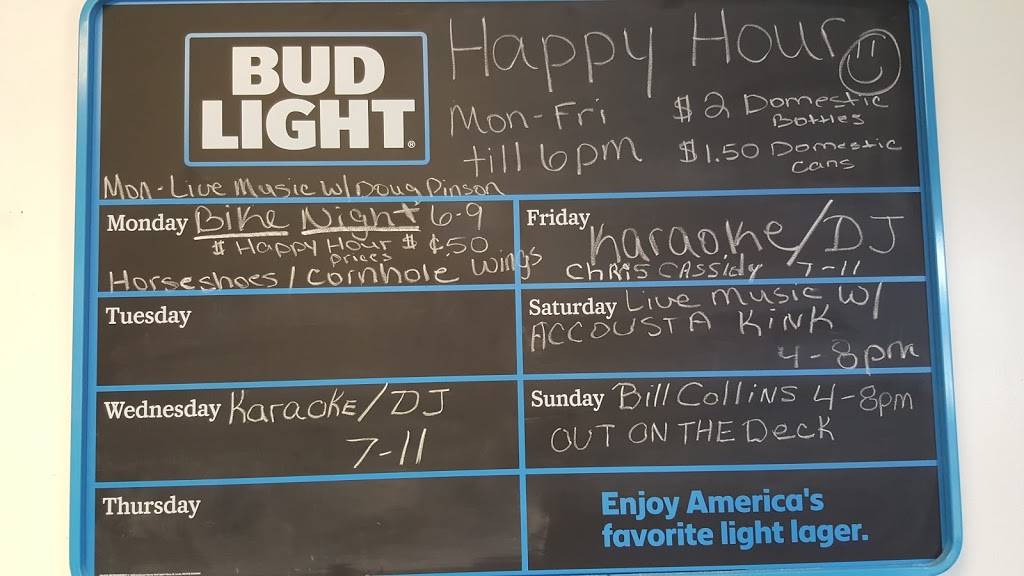 BUD
LIGHT
Happy Hour
Mon-Fri
till 6pm
$2 Domestic
Bottles
$1.50 Domestic
Cans
Mon-Live Music w/Doug Pinson
Monday Bike Night 6-9
$ Happy Hour $ ¢.50
prices
Horseshoes / Cornhole wings
Tuesday
Wednesday Karaoke/DJ
7-11
Thursday
Friday Karaoke/DJ
Chris Cassidy 7-11
Saturday Live music w/
ACCOUSTA KINK
4-8pm
Sunday Bill Collins 4-8pm
OUT ON THE Deck
Enjoy America's
favorite light lager.